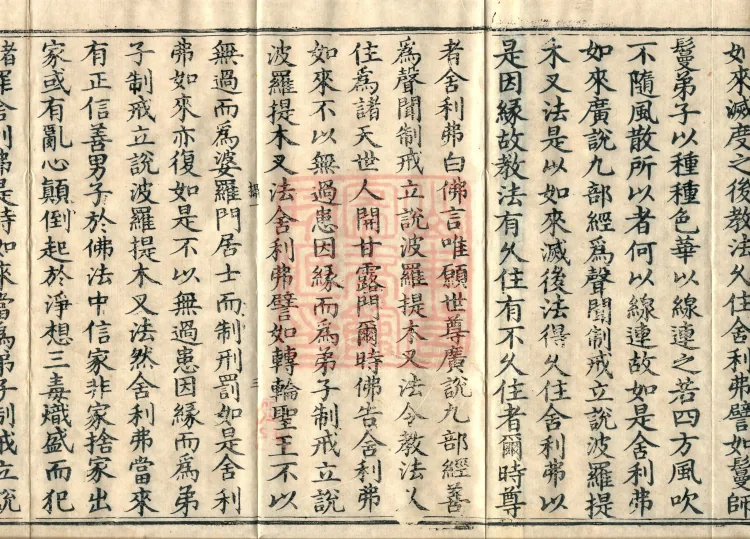 如來滅度之後教法久住舍利弗譬如鬘師
鬘弟子以種種色華以線連之若四方風吹
不隨風散所以者何以線連故如是舍利弗
如來廣說九部經爲聲聞制戒立說波羅提
木叉法是以如來滅後法得久住舍利弗以
是因緣故教法有久住有不久住者爾時尊
者舍利弗白佛言唯願世尊廣說九部經善
爲聲聞制戒立說波羅提木叉法令教法久
住爲諸天世人開甘露門爾時佛告舍利弗
如來不以無過患因緣而爲弟子制戒立說
波羅提木叉法舍利弗譬如轉輪聖王不以
無過而爲婆羅門居士而制刑罰如是舍利
弗如來亦復如是不以無過患因緣而爲弟
子制戒立說波羅提木叉法然舍利弗當來
有正信善男子於佛法中信家非家捨家出
家或有亂心顛倒起於淨想三毒熾盛而犯
諸罪舍利弗是時如來當爲弟子制戒立說